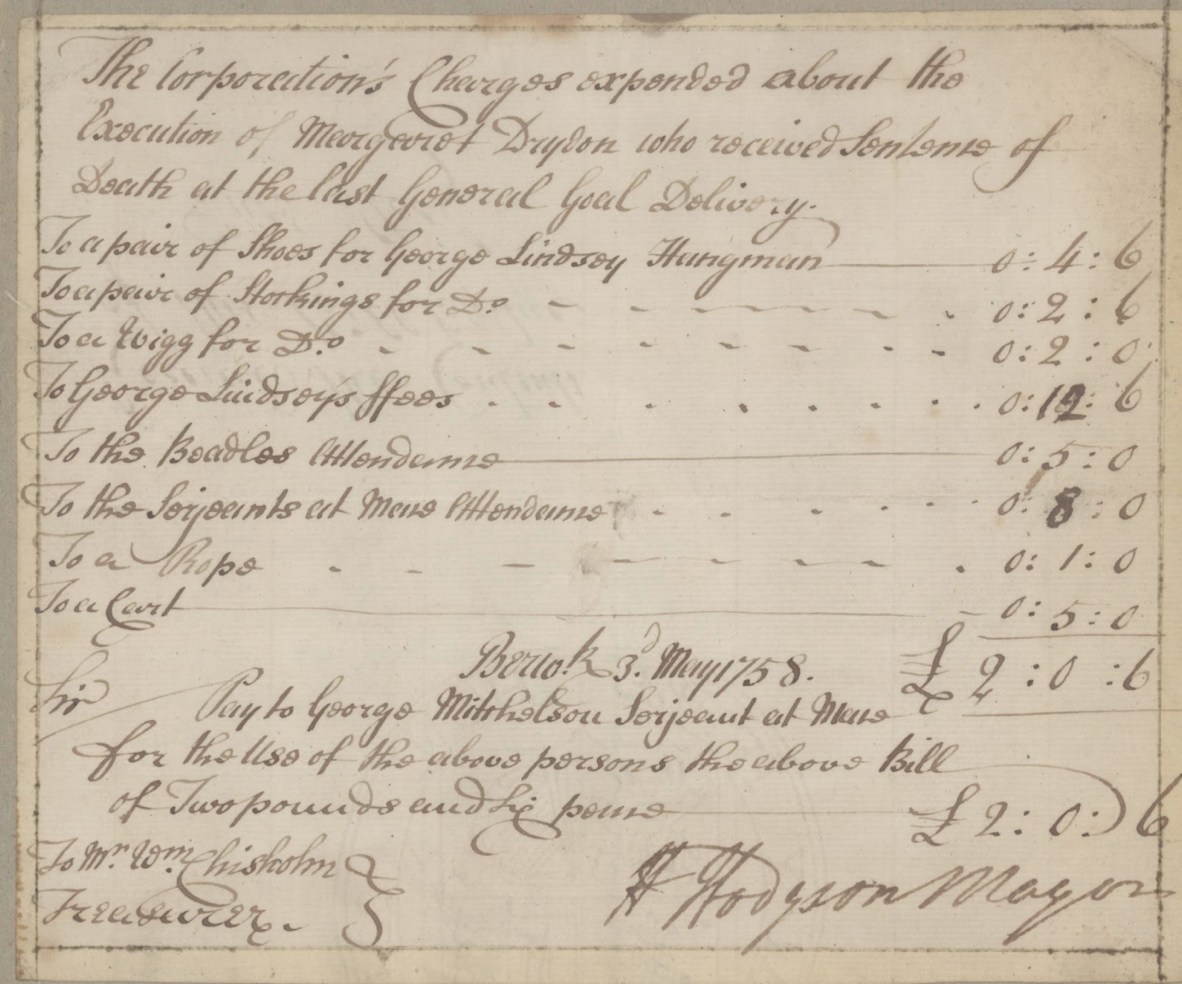 The Corporation's Charges expended about the
Execution of Margaret Dryden who received Sentence of
Death at the last General Goal Delivery.
To a pair of Shoes for George Lindsey Hangman 0: 4: 6
To a pair of Stockings for Do. 0: 2: 6
To a Wigg for Do. 0: 2: 0
To George Lindseys ffees 0: 12: 6
To the Beadles Attendance 0: 5: 0
To the Serjeants at Mace Attendance 0: 8: 0
To a Rope 0: 1: 0
To a Cart 0: 5: 0
Berwk. 3d. May 1758. £ 2: 0: 6
Sir
Pay to George Mitchelson Serjeant at Mace
for the Use of the above persons the above Bill
of Two pounds and Six pence £ 2: 0: 6
To Mr. Wm. Chisholm
Treasurer.
H Hodgson Mayor